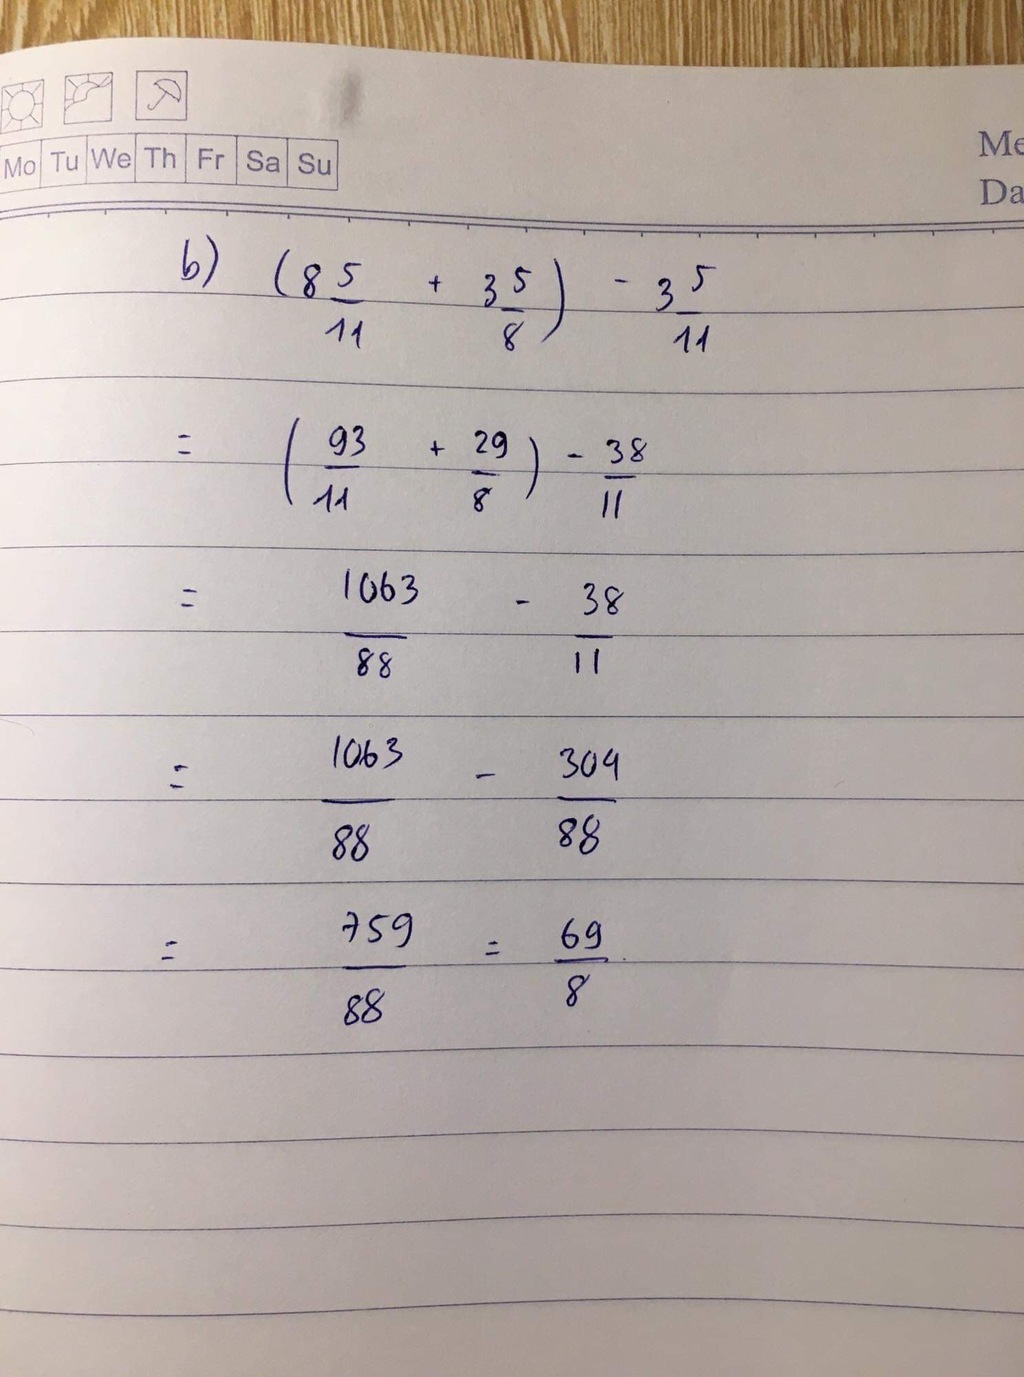 Mo Tu We Th Fr Sa Su
Me
Da
b) (8 5/11 + 3 5/8) - 3 5/11
= (93/11 + 29/8) - 38/11
= 1063/88 - 38/11
= 1063/88 - 304/88
= 759/88 = 69/8